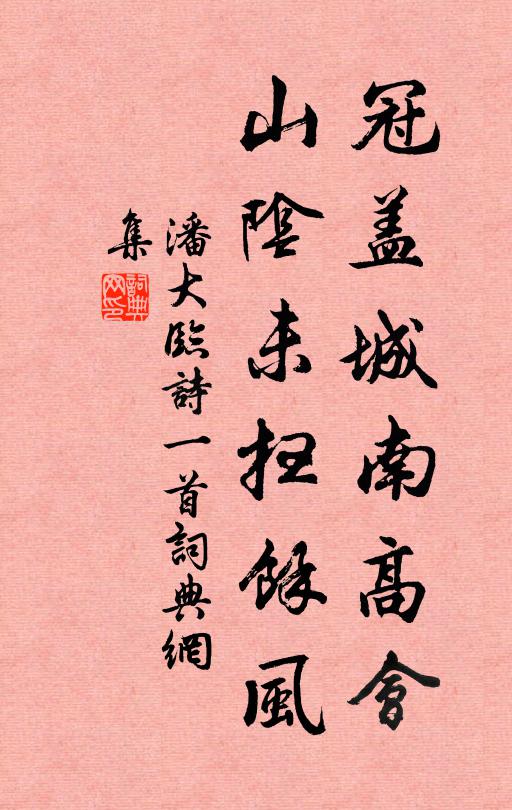 冠盖城南高會
山陰未抂餘風
潘大臨詩一首詞典網
集
詞典网印